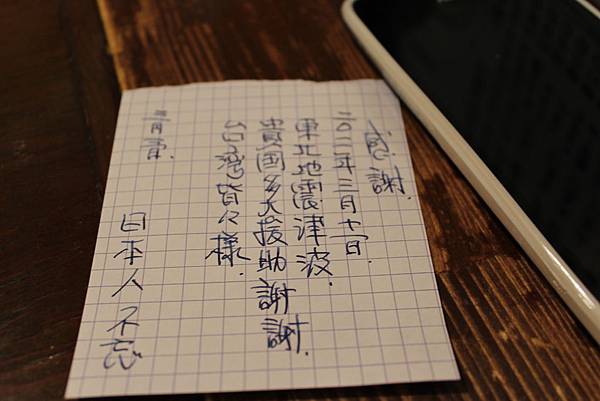 感謝.
二〇一一年三月十一日.
東北地震津波.
貴国多大援助謝謝.
台湾皆々様.
日本人不忘